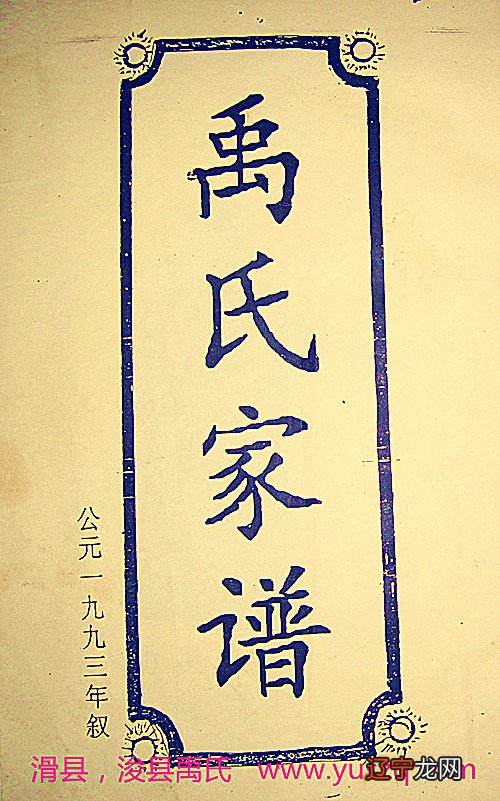 禹氏家谱
公元一九九三年叙
滑县，浚县禹氏 www.yu
辽宁龙网